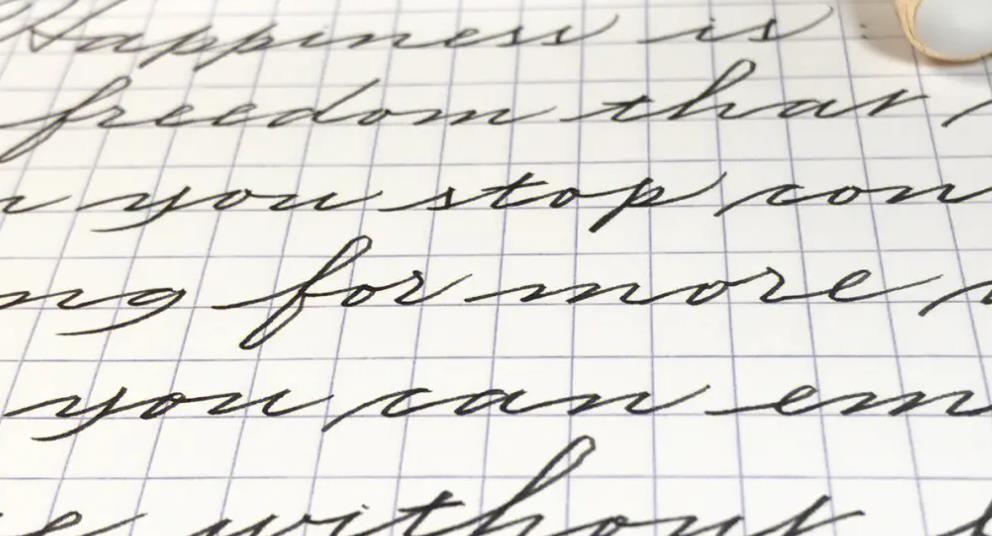 Happiness is
freedom that
you stop con
ng for more
you can em
without